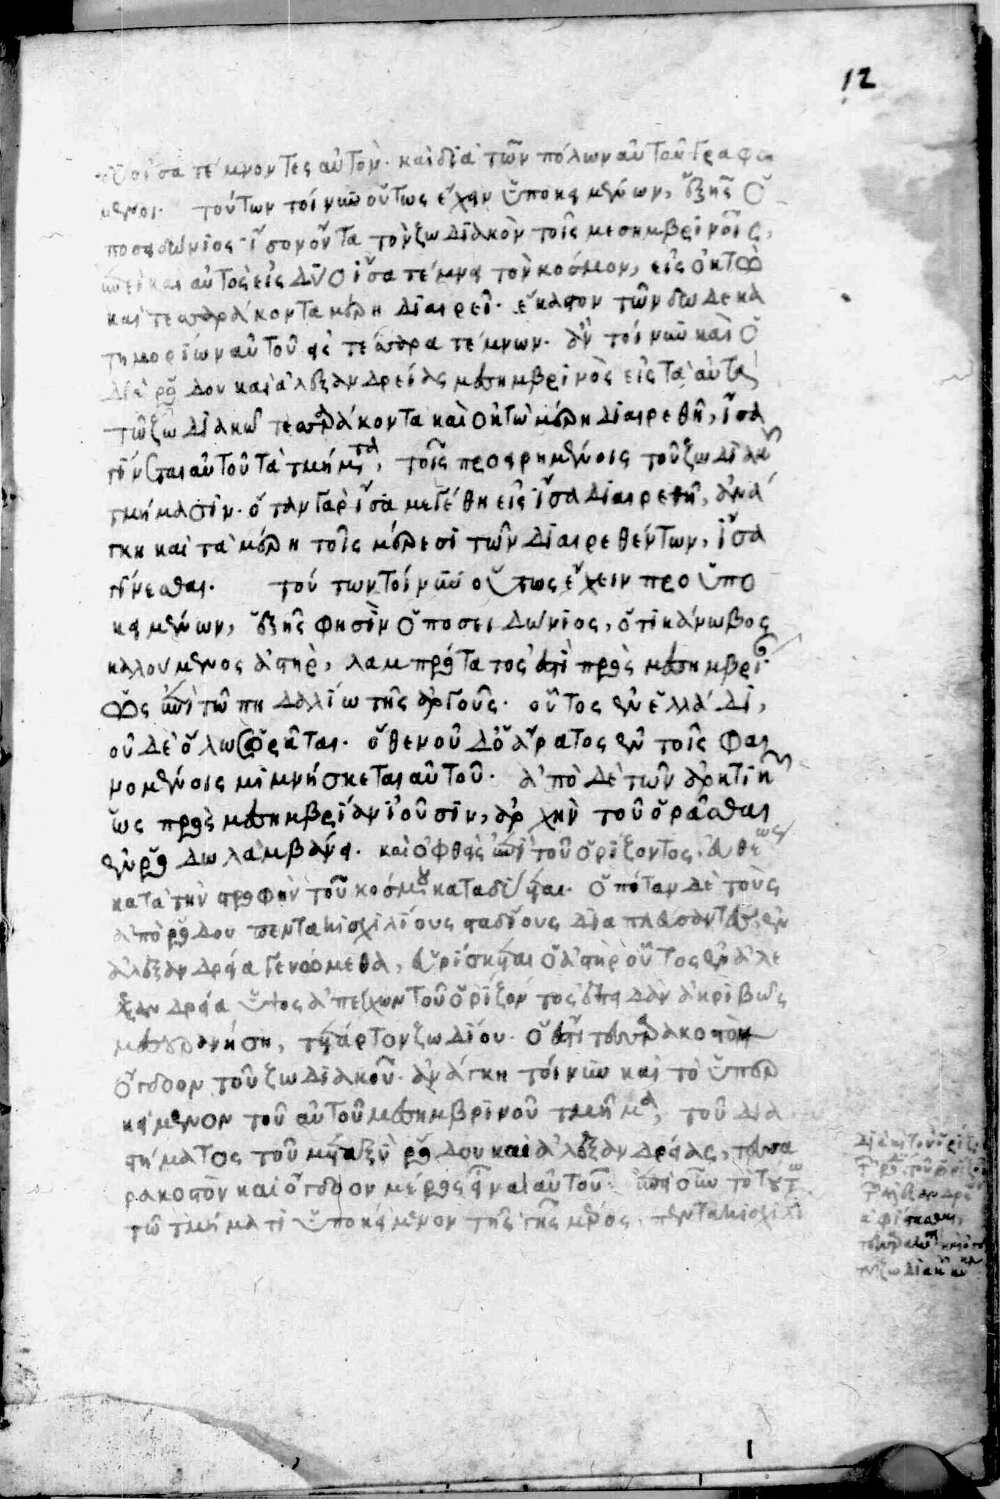 12
δύο ἶσα τέμνοντες αὐτὸν. καὶ διὰ τῶν πόλων αὐτοῦ γραφό
μενοι. τούτων τοίνυν οὕτως ἔχειν ὑποκειμένων, ἑξῆς ὁ
ποσειδώνιος ἴσον ὄντα τὸν ζωδιακὸν τοῖς μεσημβρινοῖς,
ἐπεὶ καὶ αὐτὸς εἰς δύο ἶσα τέμνει τὸν κόσμον, εἰς ὀκτὼ
καὶ τεσσαράκοντα μέρη διαιρεῖ. ἕκαστον τῶν δωδεκα
τημορίων αὐτοῦ εἰς τέσσαρα τέμνων. ἂν τοίνυν καὶ ὁ
διὰ ῥόδου καὶ ἀλεξανδρείας μεσημβρινὸς εἰς τὰ αὐτὰ
τῶ ζωδιακῶ τεσσαράκοντα καὶ ὀκτὼ μέρη διαιρεθῆ, ἶσα
γίνεται αὐτοῦ τὰ τμήματα, τοῖς προειρημένοις τοῦ ζωδιακοῦ
τμήμασιν. ὅταν γὰρ ἶσα μεγέθη εἰς ἶσα διαιρεθῆ, ἀνά
γκη καὶ τὰ μέρη τοῖς μέρεσι τῶν διαιρεθέντων, ἶσα
γίνεσθαι. τούτων τοίνυν οὕτως ἔχειν προϋπο
κειμένων, ἑξῆς φησὶν ὁ ποσειδώνιος, ὅτι κάνωβος
καλούμενος ἀστὴρ, λαμπρότατός ἐστι πρὸς μεσημβρί
ἐπὶ τῶ πηδαλίω τῆς ἀργοῦς. οὗτος ἐν ἑλλάδι,
οὐδὲ ὅλως ὁρᾶται. ὅθεν οὐδ' ὁ ἄρατος ἐν τοῖς φαι
νομένοις μιμνήσκεται αὐτοῦ. ἀπὸ δὲ τῶν ἀρκτικῶν
ὡς πρὸς μεσημβρίαν ἰοῦσιν, ἀρχὴν τοῦ ὁρᾶσθαι
ἐν ῥόδω λαμβάνει. καὶ ὀφθεὶς ἐπὶ τοῦ ὁρίζοντος, εὐθέως
κατὰ τὴν στροφὴν τοῦ κόσμου καταδύεται. ὁπόταν δὲ τοὺς
ἀπὸ ῥόδου πεντακισχιλίους σταδίους διαπλεύσαντες ἐν
ἀλεξανδρεία γενώμεθα, εὑρίσκεται ὁ ἀστὴρ οὗτος ἐν ἀλε
ξανδρεία ὕψος ἀπέχων τοῦ ὁρίζοντος ἐπειδὰν ἀκριβῶς
μεσουρανήση, τέταρτον ζωδίου. ὅ ἐστι τεσσαρακοστὸν
ὄγδοον τοῦ ζωδιακοῦ. ἀνάγκη τοίνυν καὶ τὸ ὑπερ
κείμενον τοῦ αὐτοῦ μεσημβρινοῦ τμῆμα, τοῦ δια
στήματος τοῦ μεταξὺ ῥόδου καὶ ἀλεξανδρείας, τεσσα
ρακοστὸν καὶ ὄγδοον μέρος εἶναι αὐτοῦ.
τῶ τμήματι ὑποκείμενον τῆς γῆς μέρος, πεντακισχιλί